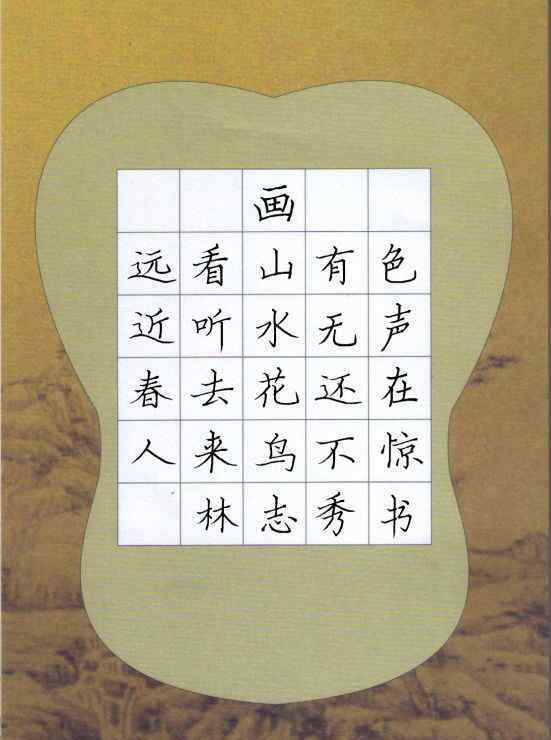 画
远看山有色
近听水无声
春去花还在
人来鸟不惊
林志秀书